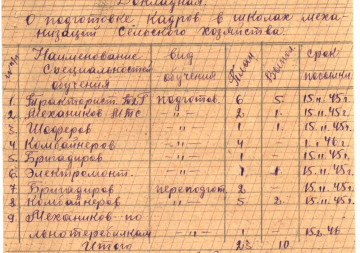 Докладная.
О подготовке Кадров в школах меха-
низации Сельского хозяйства.
Наименование Специальностей обучения | вид обучения | План | Выпол | срок
1. Тракторист | подготов. | 6 | 5 | 15.II.45г.
2. Механиков МТС | -"- | 2 | 1. | 15.II.45г.
3. Шоферов | -"- | 1 | 1. | 15.II.45г.
4. Комбайнеров | -"- | 4 | - | 1. 46г.
5. Бригадиров | -"- | 1 | - | 15.II.45г.
6. Электромонт. | -"- | 1 | 1 | 15.II.45г.
7 Бригадиров | переподгот. | 2 | - | 15.II.45г.
8 Комбайнеров | -"- | 5 | 2. | 15.II.45г.
9 Механиков по
льнотеребилкам | -"- | 15. 46
Итого | 23 | 10